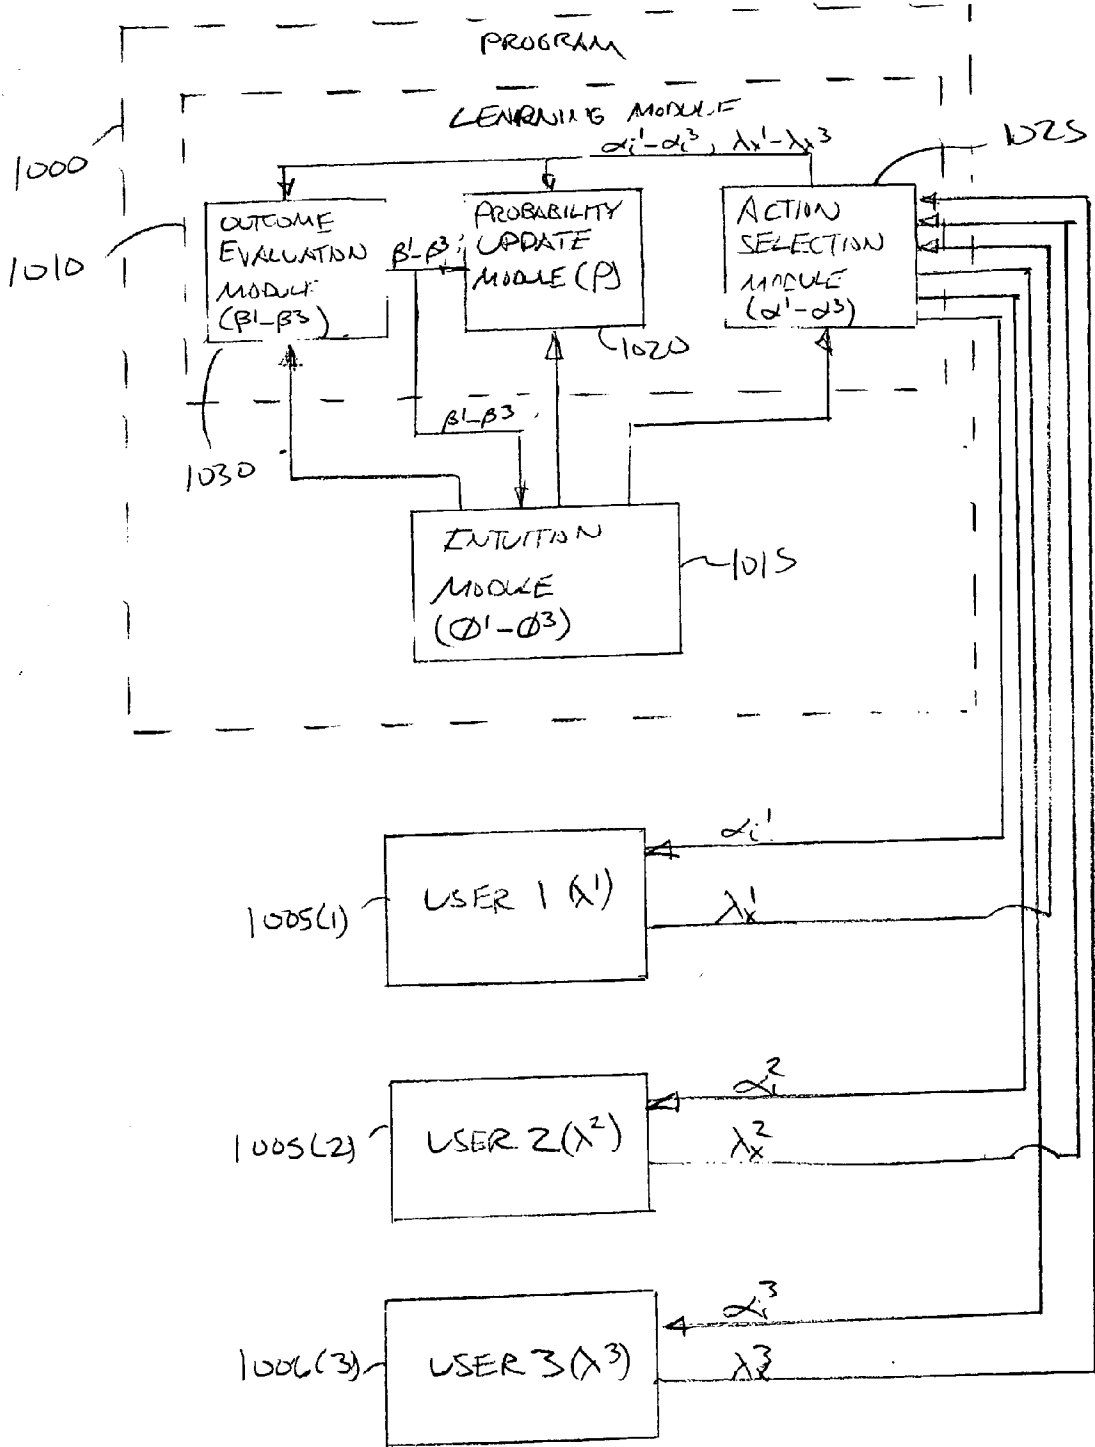 PROGRAM
LEARNING MODULE
αi¹-αi³, λx¹-λx³
1025
1000
1010
OUTCOME
EVALUATION
MODULE
(β¹-β³)
β¹-β³
PROBABILITY
UPDATE
MODULE (P)
1020
ACTION
SELECTION
MODULE
(α¹-α³)
β¹-β³
1030
INTUITION
MODULE
(Ø¹-Ø³)
1015
αi¹
USER 1 (λ¹)
λx¹
1005(1)
αi²
USER 2 (λ²)
λx²
1005(2)
αi³
USER 3 (λ³)
λx³
1006(3)